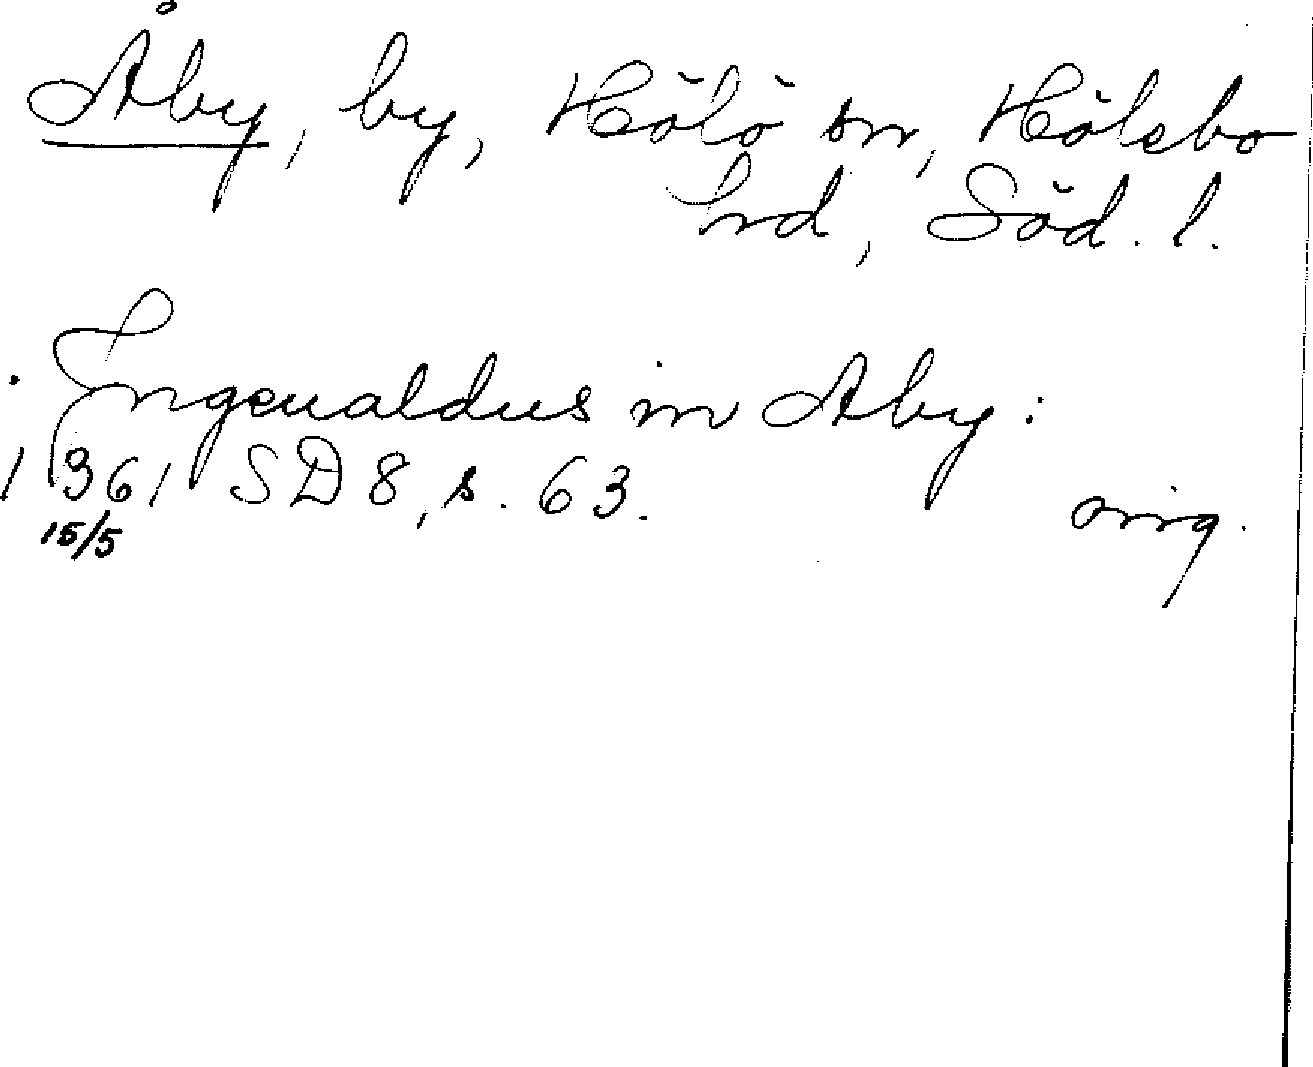 Åby, by, Hölö sn, Hölebo
hrd, Söd. l.
Ingeualdus in Aby:
1361 SD 8, s. 63.
15/5 orig.